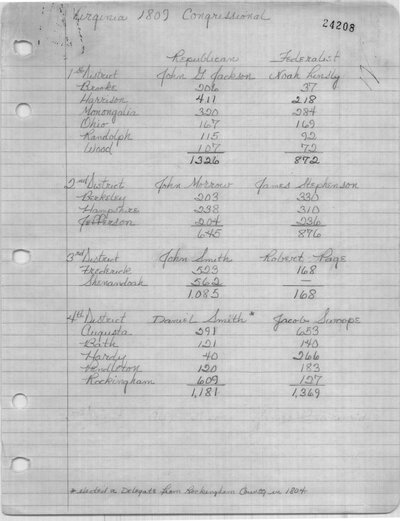 Virginia 1809 Congressional
24208
Republican Federalist
1st District John G Jackson Noah Linsly
Brooke 206 37
Harrison 411 218
Monongalia 320 284
Ohio 167 169
Randolph 115 92
Wood 107 72
1326 872
2nd District John Morrow James Stephenson
Berkeley 203 330
Hampshire 238 310
Jefferson 204 236
645 876
3rd District John Smith Robert Page
Frederick 523 168
Shenandoah 562 —
1,085 168
4th District Daniel Smith * Jacob Swoope
Augusta 291 653
Bath 121 140
Hardy 40 266
Pendleton 120 183
Rockingham 609 127
1,181 1,369
* elected a Delegate from Rockingham County in 1804